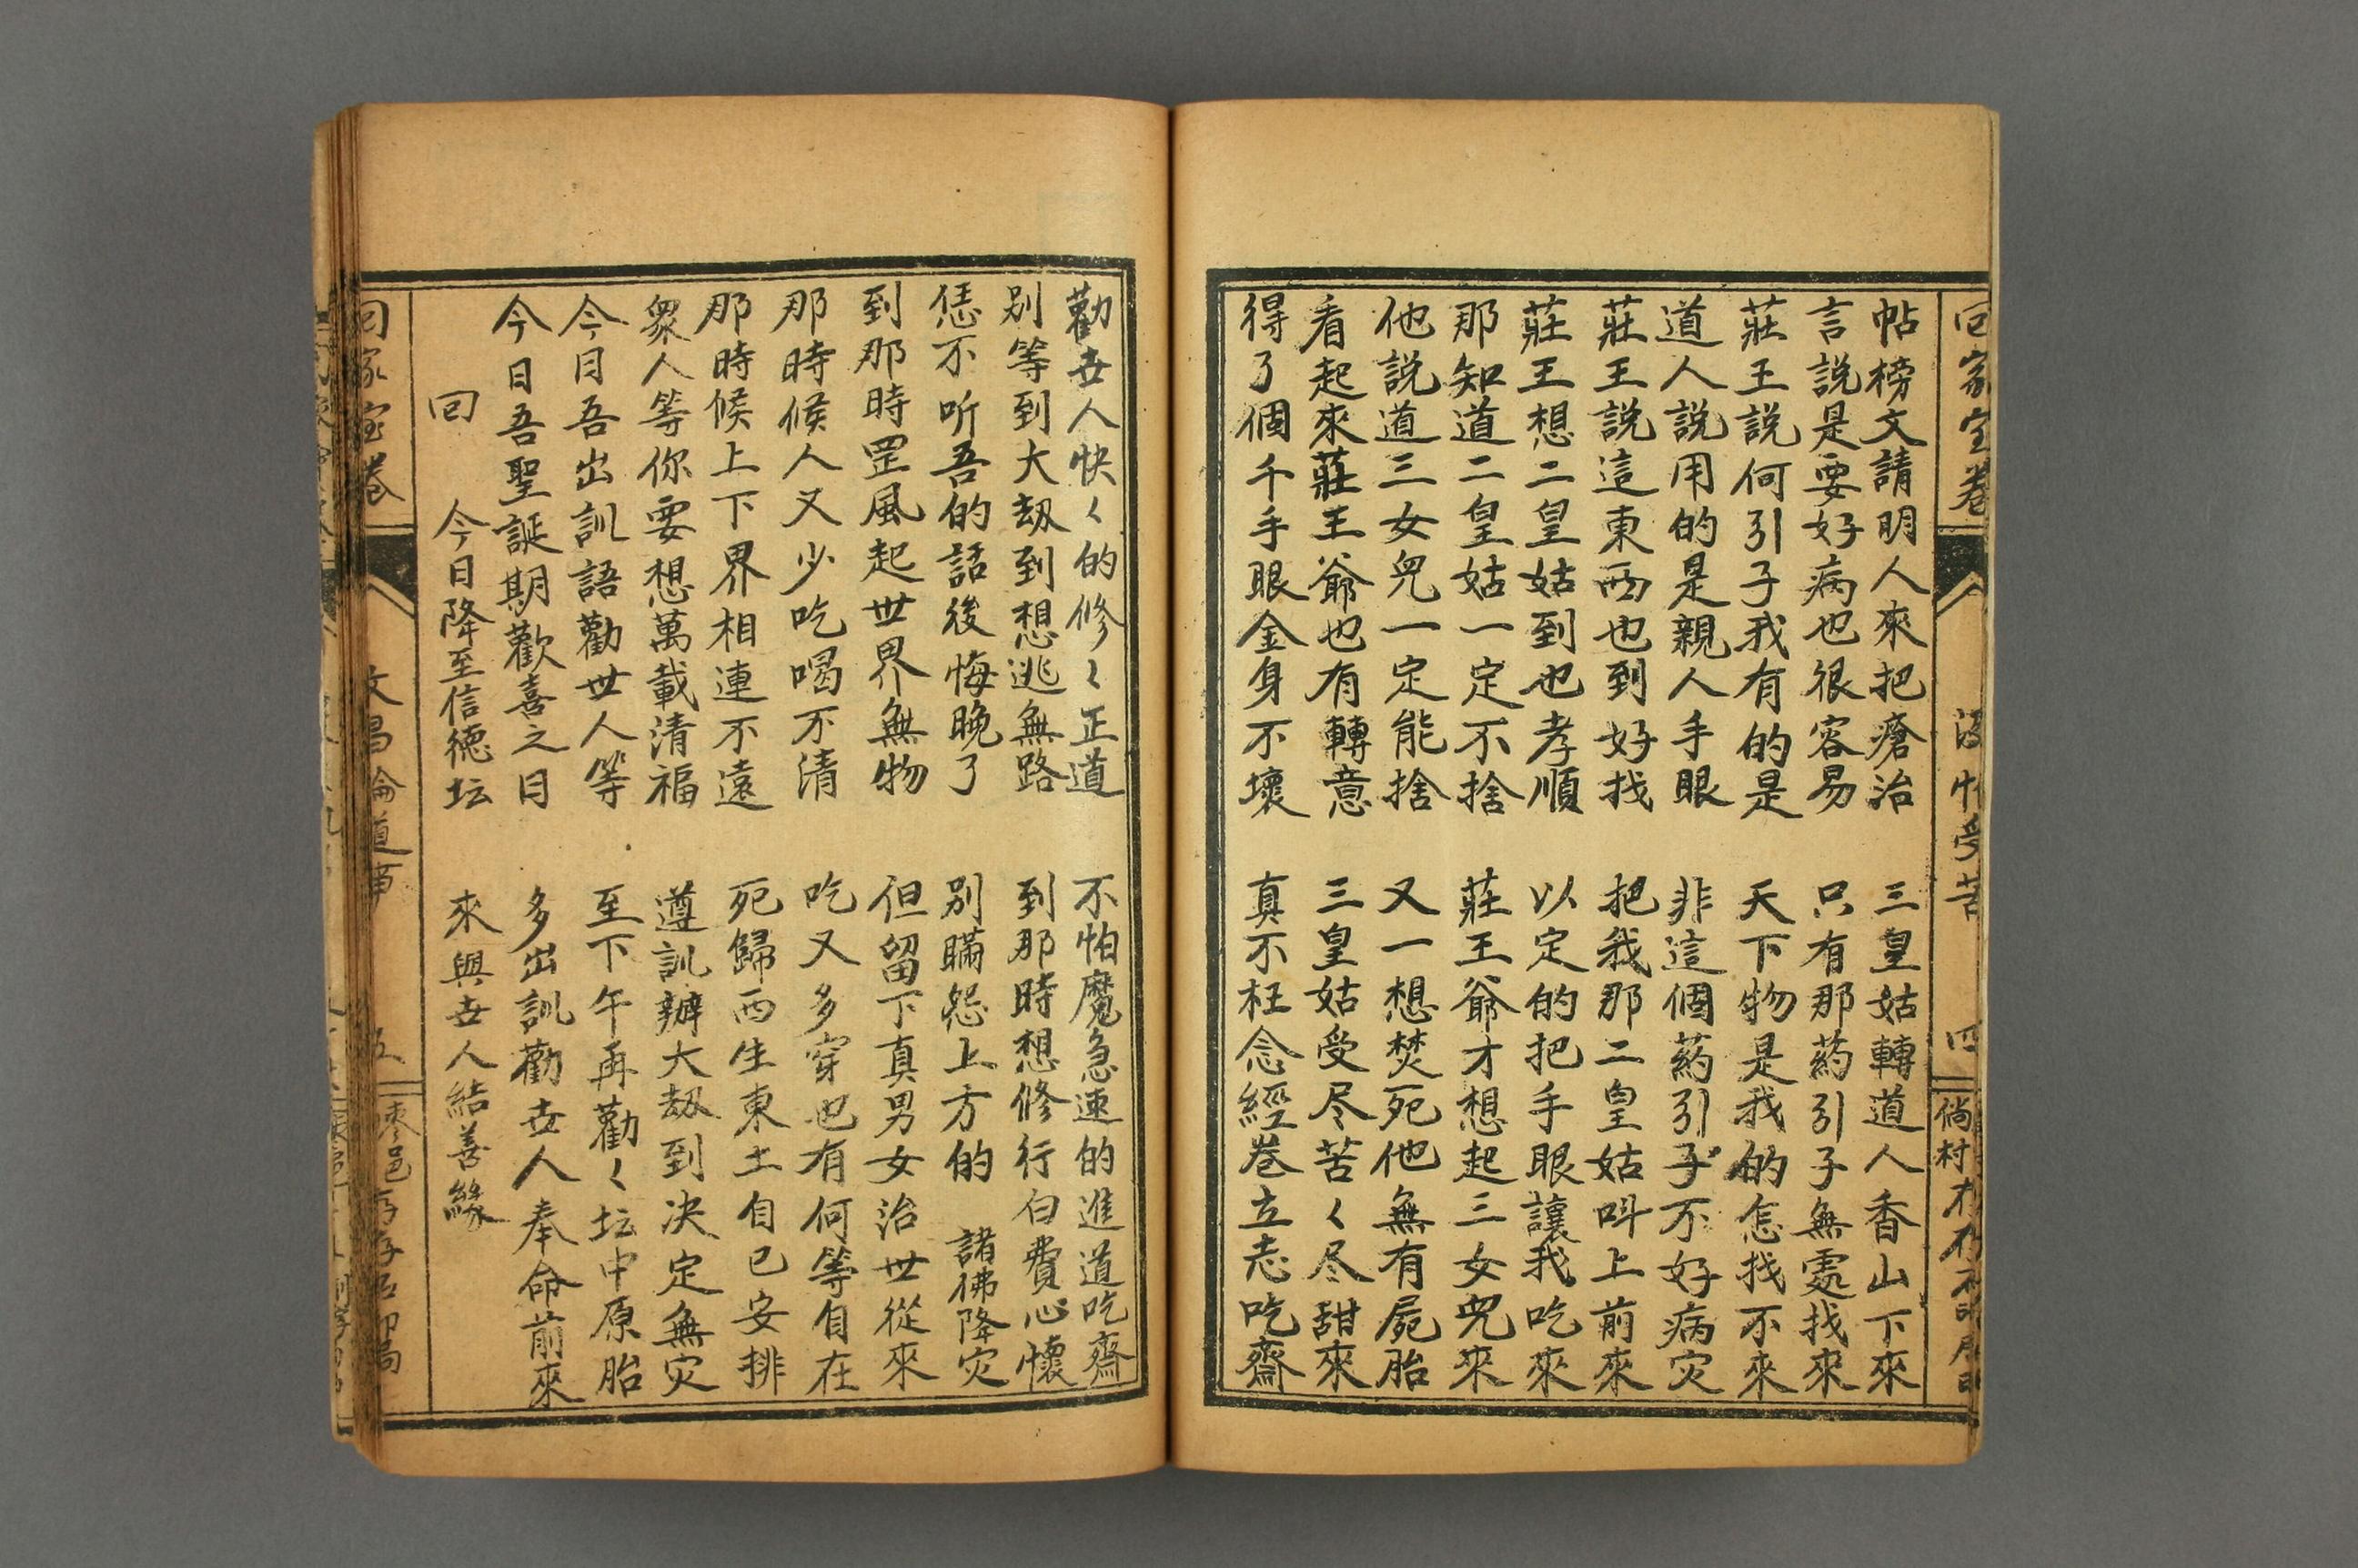 回家宝卷
四
帖榜文請明人來把瘡治 三皇姑轉道人香山下來
言說是要好病也很容易 只有那葯引子無處找來
莊王說何引子我有的是 天下物是我的怎找不來
道人說用的是親人手眼 非這個葯引子不好病灾
莊王說這東西也到好找 把我那二皇姑呌上前來
莊王想二皇姑到也孝順 以定的把手眼讓我吃來
那知道二皇姑一定不捨 莊王爺才想起三女兒來
他說道三女兒一定能捨 又一想焚死他無有屍胎
看起來莊王爺也有轉意 三皇姑受尽苦〻尽甜來
得了個千手眼金身不壞 真不枉念經卷立志吃齋
勸世人快〻的修〻正道 不怕魔急速的進道吃齋
別等到大劫到想逃無路 到那時想修行白費心懷
恁不听吾的話後悔晚了 別瞞怨上方的 諸佛降灾
到那時罡風起世界無物 但留下真男女治世從來
那時候人又少吃喝不清 吃又多穿也有何等自在
那時候上下界相連不遠 死歸西生東土自己安排
衆人等你要想萬載清福 遵訓辦大劫到决定無灾
今日吾出訓語勸世人等 至下午再勸〻坛中原胎
今日吾聖誕期歡喜之日 多出訓勸世人奉命前來
回 今日降至信德坛 來與世人結善緣
回家宝卷
文昌論道
五